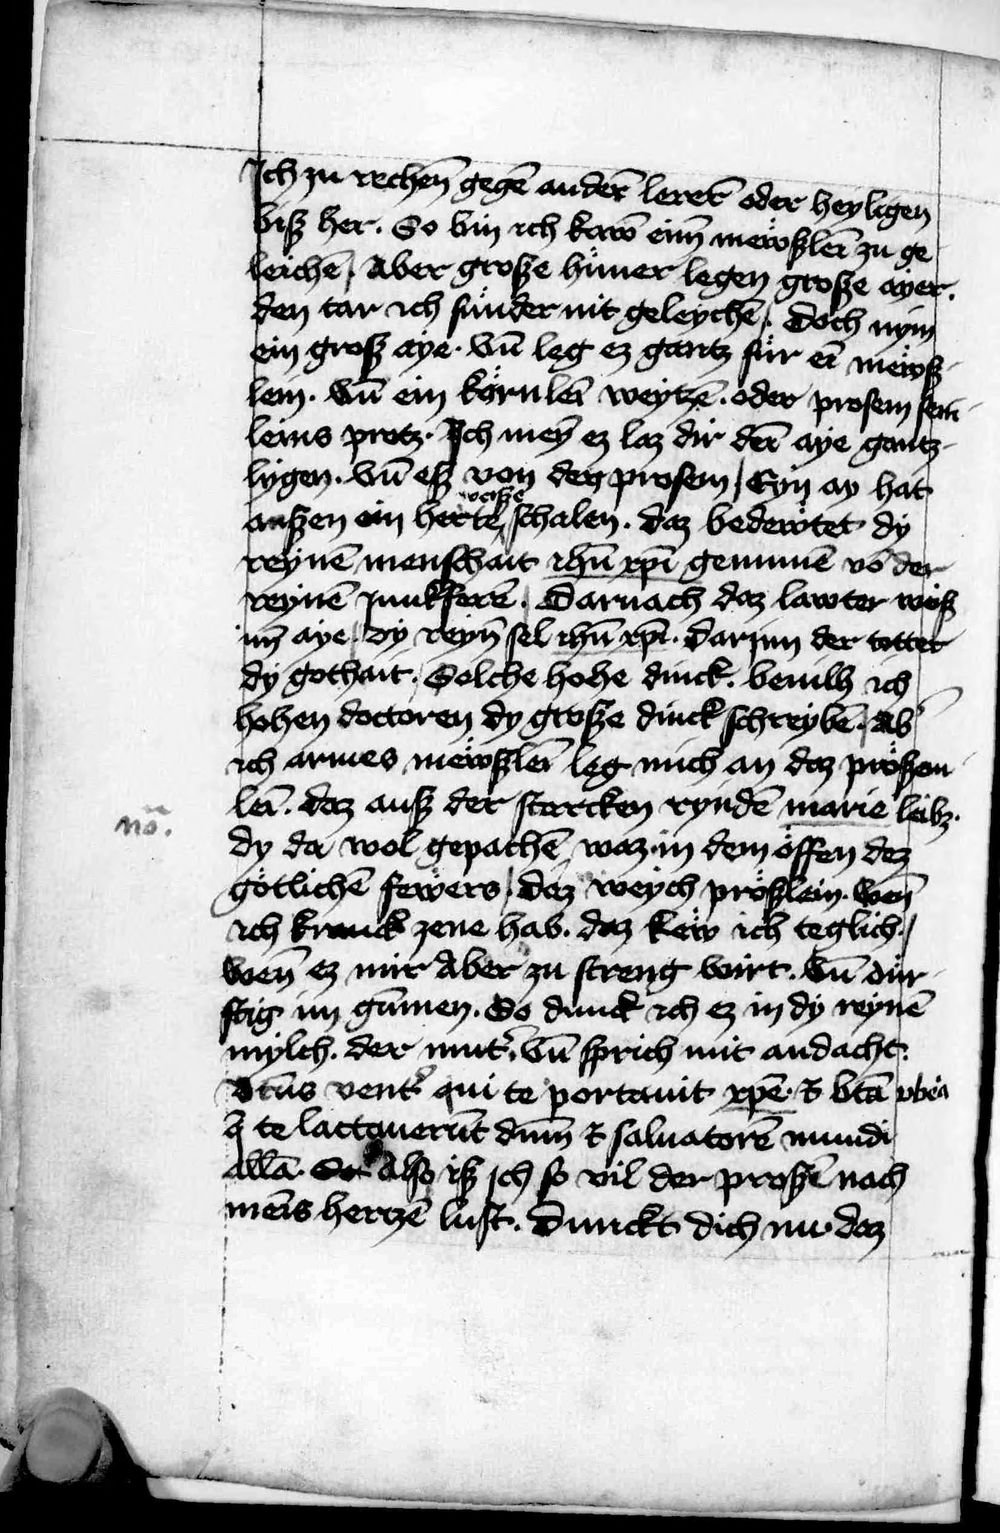 Ich zu rechen̄ gegē anderr̄ lerer̄ oder heyligen
biß her. So bin ich kaw̄ eim̄ mewßleī zu ge
leichē, Aber große hüner legen große ayer.
den tar ich sunder nit geleychē. Doch nym
ein groß aye. Vn̄ leg ez gantz für eī mewß
lein. Vn̄ ein körnleī weytzē. oder prosem sem
leins protz. Ich mey̅ ez laz dir der̄ aye gantz
lygen. Vn̄ eß von den prosem, Eyn ay hat
außen ein herte weiße schalen. daz bedewtet dy
reynē menschait ihū xp̄i genumē vō der
reynē junkferē. Darnach daz lawter weiß
im̄ aye. dy reyn̄ sel ihū xp̄i. darjnn der totter
dy gothait. Solche hohe dinck. beuilh ich
hohen doctoren dy große dinck schreybē. Ab'
ich armes mewßleī leg mich an daz prößem
leī. daz auß der starcken ryndē marie leibz.
nō.
dy da wol gepachē waz in dem öffen dez
götlichē fewers, daz weych prößlein. wen̄
ich kranck zene hab. daz kew ich teglich.
Wen̄ ez mir Aber zu streng wirt. Vn̄ dür
stig im gūmen. So dunck ich ez in dy reynē
mylch. der mut'. Vn̄ sprich mit andacht.
Btūs vent' qui te portauit xp̄e. et btā vb'a
q̄ te lactauerūt dn̄m et saluatorē mundi
allā. Also iß ich so vil der proßē nach
meīs hertzē lust. Dunckt dich nu daz